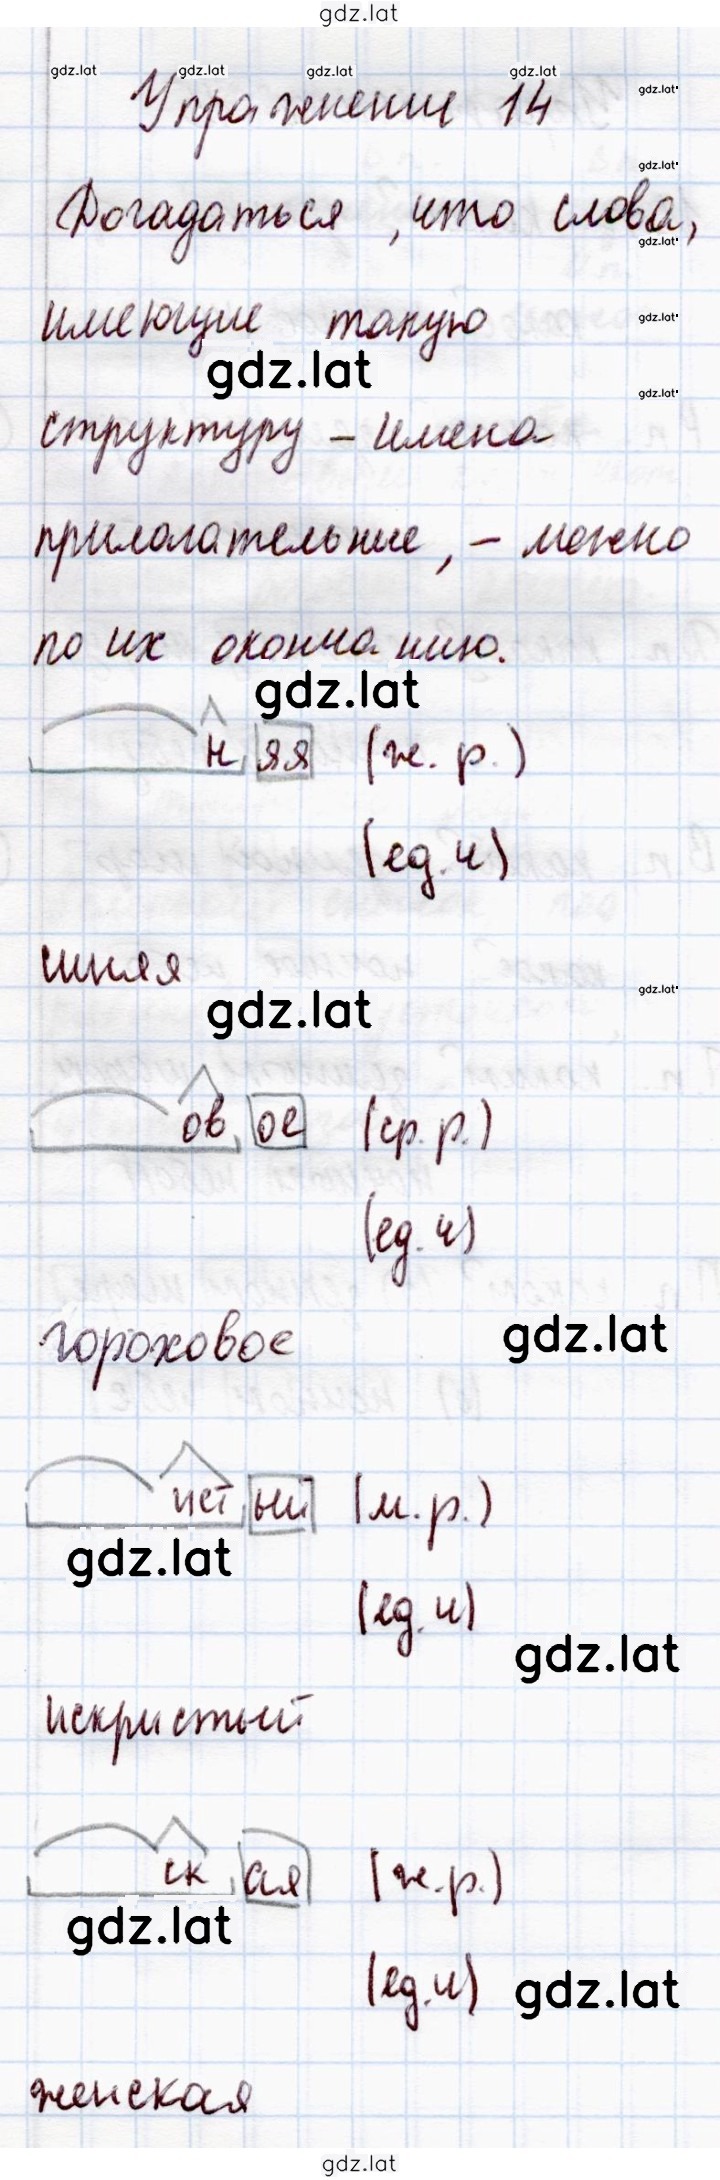 gdz.lat
gdz.lat gdz.lat gdz.lat gdz.lat gdz.lat
Упражнение 14
gdz.lat
Догадаться, что слова,
gdz.lat
имеющие такую
gdz.lat
gdz.lat
gdz.lat
структуру – имена
прилагательные, – можно
по их окончанию.
gdz.lat
н яя (ж. р.)
(ед. ч)
синяя
gdz.lat
gdz.lat
ов ое (ср. р.)
(ед. ч)
гороховое
gdz.lat
ист ый (м. р.)
gdz.lat
(ед. ч)
gdz.lat
искристый
ск ая (ж. р.)
gdz.lat
(ед. ч)
gdz.lat
женская
gdz.lat